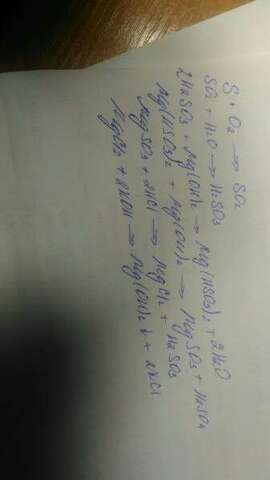 S + O2 → SO2
SO2 + H2O → H2SO3
2H2SO3 + Mg(OH)2 → Mg(HSO3)2 + 2H2O
Mg(HSO3)2 + Mg(OH)2 → MgSO3 + H2SO4
MgSO3 + 2HCl → MgCl2 + H2SO3
MgCl2 + 2KOH → Mg(OH)2↓ + 2KCl